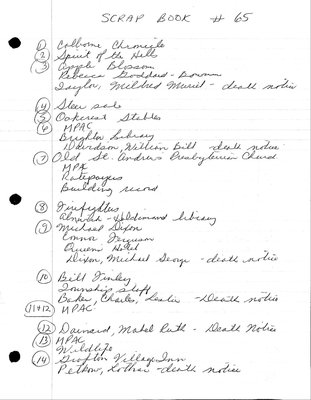 SCRAP BOOK # 65
1 Colborne Chronicle
2 Spirit of the Hills
3 Apple Blossom
Rebecca Goddard-
Taylor, Mildred Muriel - death notice
4 Stew
5 Oakcrest Stables
6 MPAC
Brighton Library
Davidson, William Bill - death notice
7 Old St. Andrews Presbyterian Church
MPA
Ratepayers
Building record
8 Firefighters
Alnwick - Haldimand library
9 Michael Dixon
Connor Ferguson
Queens Hotel
Dixon, Michael George - death notice
10 Bill Finley
Township staff
Baker, Charles, Leslie - Death notice
11+12 MPAC
12 Dainard, Mabel Ruth - Death Notice
13 MPAC
Wildlife
14 Grafton Village Inn
Petkow, Lothar - death notice